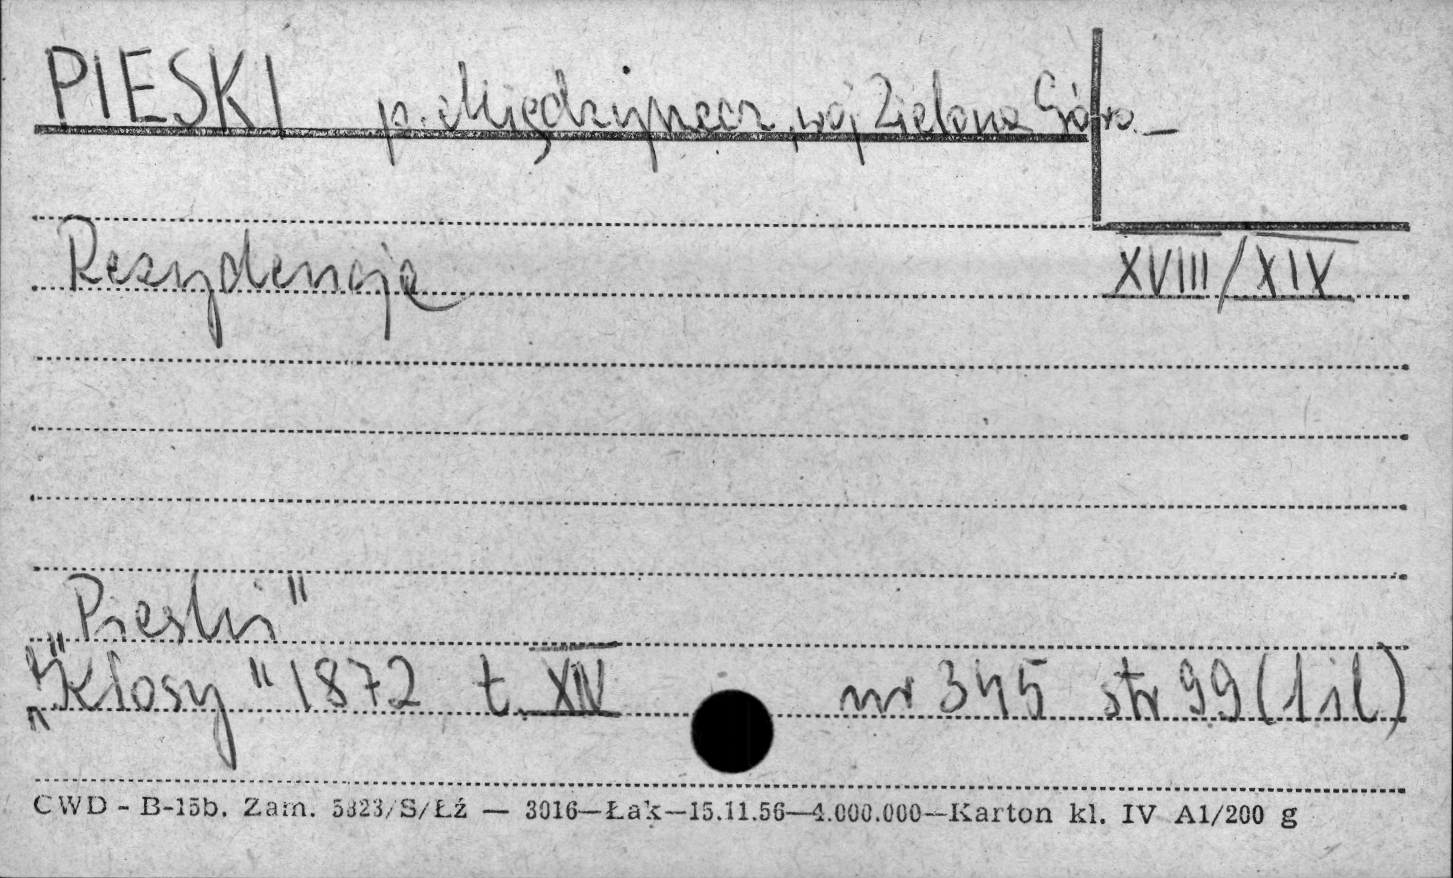 PIESKI p. Międzyrzecz, woj Zielona Góra
Rezydencja XVIII/XIX
„Pieski"
„Kłosy" 1872 t. XIV nr 345 str 99 (1 il)
CWD - B-15b. Zam. 5823/S/Łź — 3016—Łak—15.11.56—4.000.000—Karton kl. IV A1/200 g